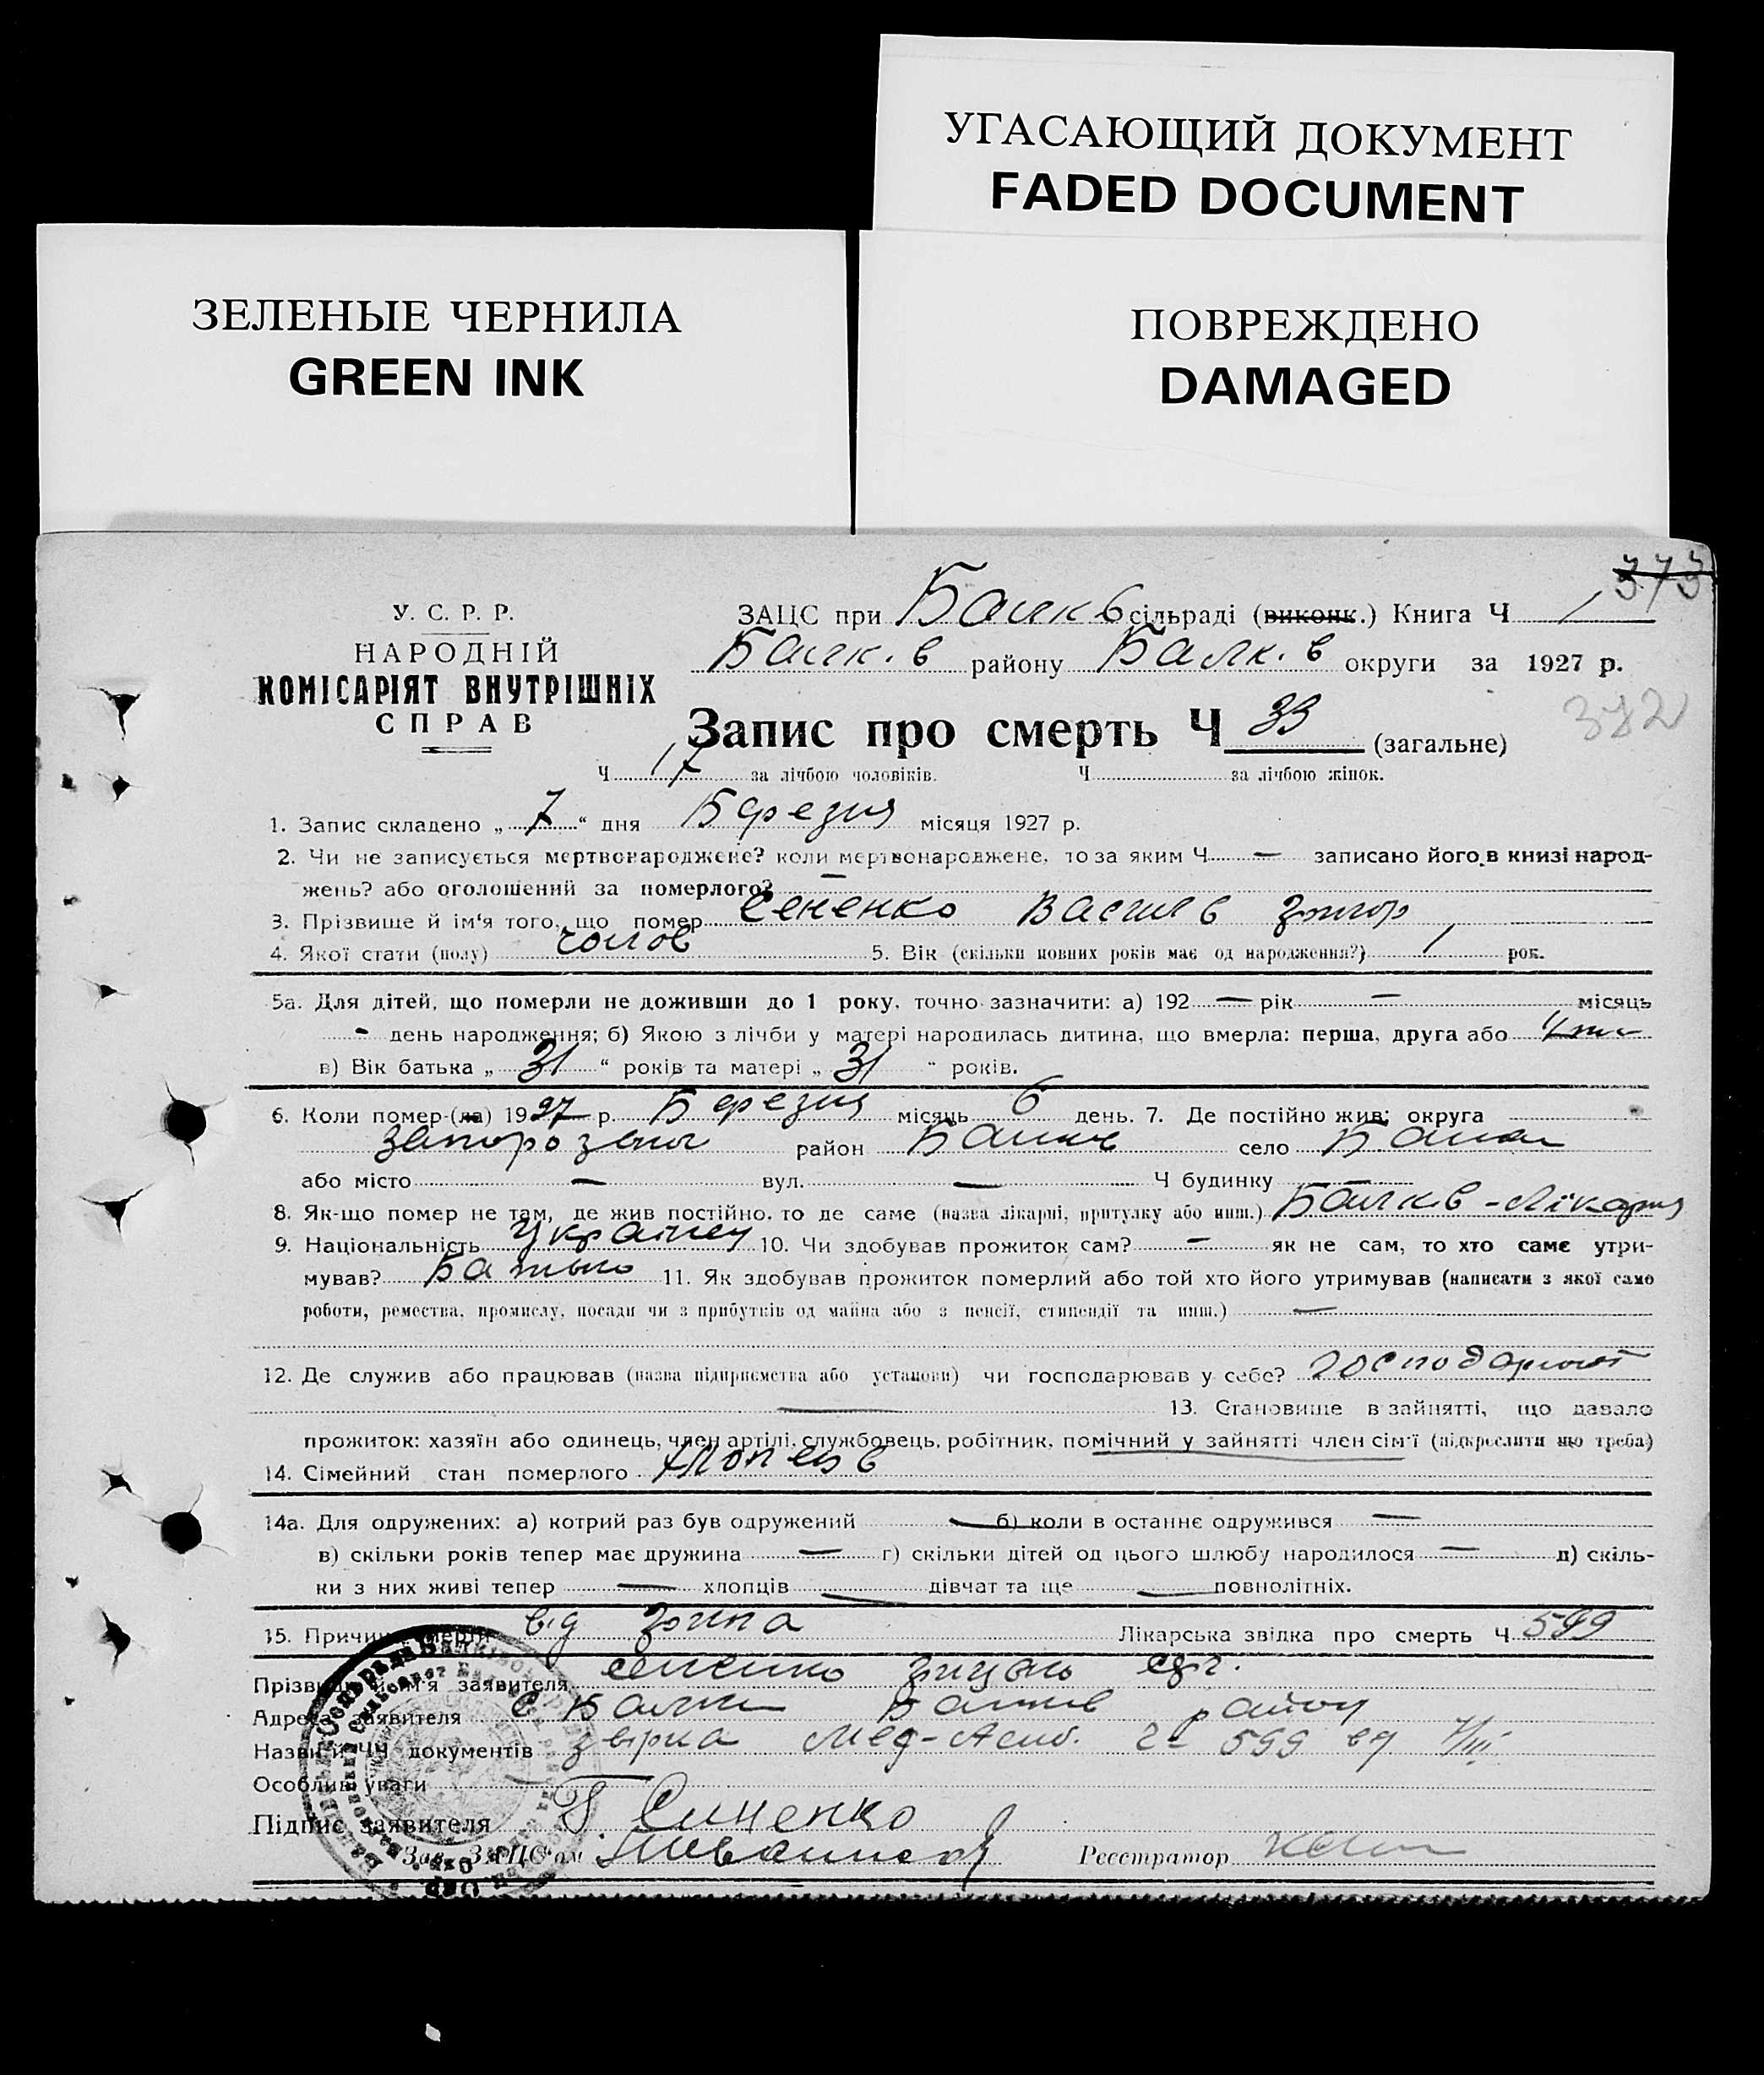 УГАСАЮЩИЙ ДОКУМЕНТ
FADED DOCUMENT
ЗЕЛЕНЫЕ ЧЕРНИЛА
GREEN INK
ПОВРЕЖДЕНО
DAMAGED
373
У. С. Р. Р.
НАРОДНІЙ
КОМІСАРІЯТ ВНУТРІШНІХ
СПРАВ
ЗАЦС при Балк в сільраді (виконк.) Книга Ч 1
Балк. в району Балк. в округи за 1927 р.
372
Запис про смерть Ч 33 (загальне)
Ч 17 за лічбою чоловіків. Ч за лічбою жінок.
1. Запис складено „ 7 “ дня Березня місяця 1927 р.
2. Чи не записується мертвонароджене? коли мертвонароджене, то за яким Ч — записано його в книзі народ-
жень? або оголошений за померлого? —
3. Прізвище й ім'я того, що помер Сененко Васил в
4. Якої статі (полу) чолов 5. Вік (скільки повних років має од народження?) 1 рок.
5а. Для дітей, що померли не доживши до 1 року, точно зазначити: а) 192 — рік — місяць
- день народження; б) Якою з лічби у матері народилась дитина, що вмерла: перша, друга або 4
в) Вік батька „ 31 “ років та матері „ 31 “ років.
6. Коли помер-(ла) 1927 р. Березня місяць 6 день. 7. Де постійно жив: округа
район Балків село Балки
або місто — вул. — Ч будинку —
8. Як-що помер не там, де жив постійно, то де саме (назва лікарні, притулку або инш.) Балк.в - Лікарня
9. Національність Україн 10. Чи здобував прожиток сам? — як не сам, то хто саме утри-
мував? Батько 11. Як здобував прожиток померлий або той хто його утримував (написати з якої само
роботи, ремества, промислу, посади чи з прибутків од майна або з пенсії, стипендії та инш.) —
12. Де служив або працював (назва підприємства або установи) чи господарював у себе?
— 13. Становище в зайнятті, що давало
прожиток: хазяїн або одинець, член артілі, службовець, робітник, помічний у зайнятті член сім'ї (підкреслити що треба)
14. Сімейний стан померлого
14а. Для одружених: а) котрий раз був одружений — б) коли в останнє одружився —
в) скільки років тепер має дружина — г) скільки дітей од цього шлюбу народилося — д) скіль-
ки з них живі тепер — хлопців — дівчат та ще — повнолітніх.
15. Причина смерти від Лікарська звідка про смерть Ч 599
Прізвище й ім'я заявителя
Адреса заявителя с Балки Балків району
Назви й ЧЧ документів 599 від 7/III
Особливі уваги —
Підпис заявителя Г. Синенко
Зав. ЗАЦС'ом Реєстратор